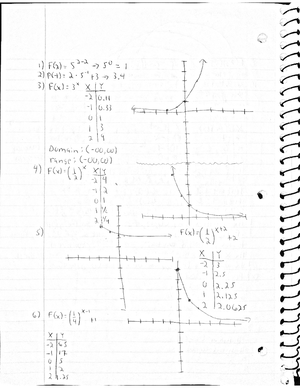 1) F(2) = 5^(2-2) → 5^0 = 1
2) F(-1) = 2 · 5^-1 + 3 → 3.4
3) F(x) = 3^x
X Y
-2 0.11
-1 0.33
0 1
1 3
2 9
Domain: (-∞, ∞)
range: (-∞, ∞)
4) F(x) = (1/2)^x
X Y
-2 4
-1 2
0 1
1 1/2
2 1/4
5)
F(x) = (1/2)^(x+2) +2
X Y
-2 3
-1 2.5
0 2.25
1 2.125
2 2.0625
6) F(x) = (1/4)^(x-1) +1
X Y
-2
-1 17
0 5
1 2
2 1.25